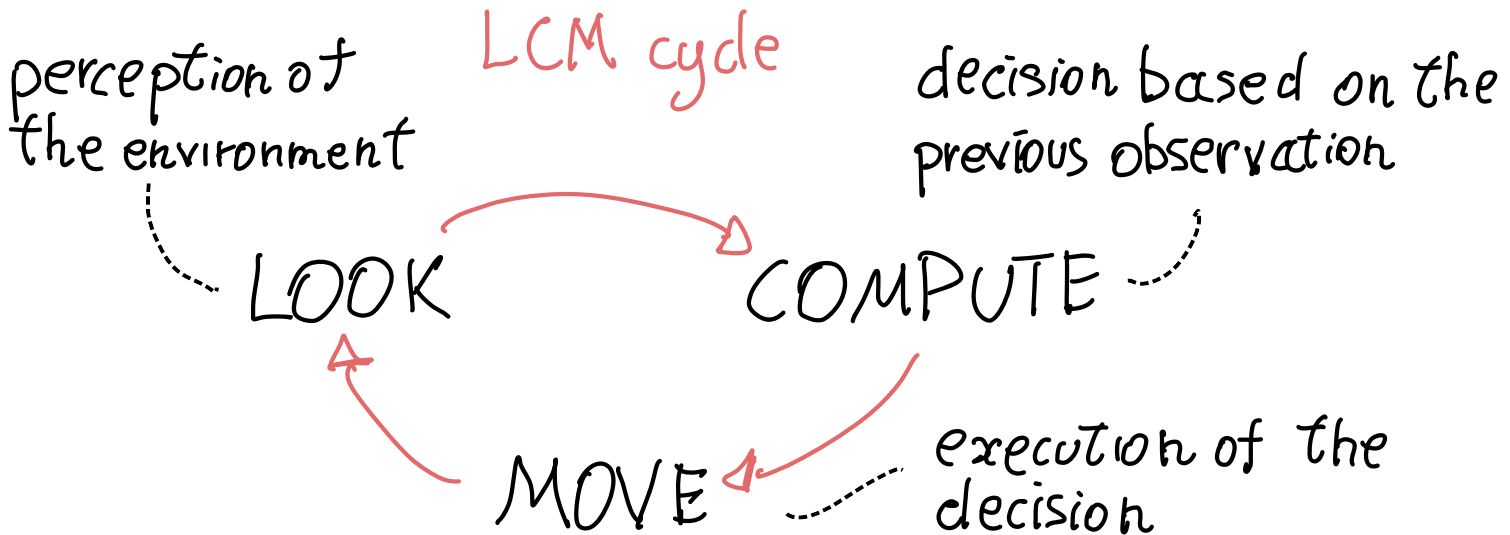 LCM cycle
perception of
the environment
decision based on the
previous observation
LOOK
COMPUTE
MOVE
execution of the
decision